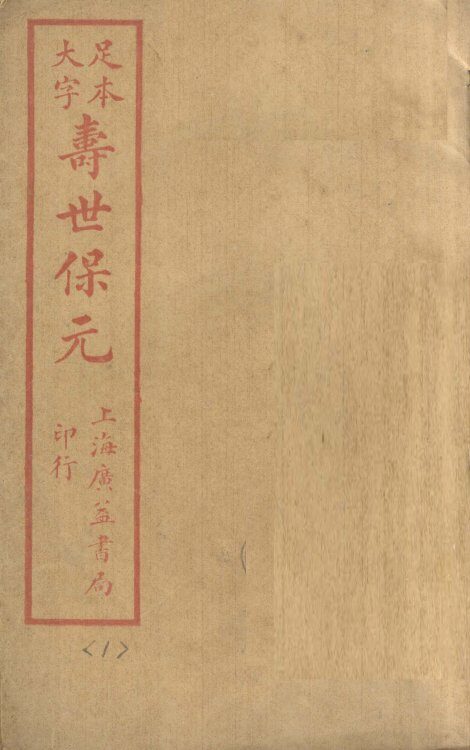 足本
大字
壽世保元
上海廣益書局
印行
<1>